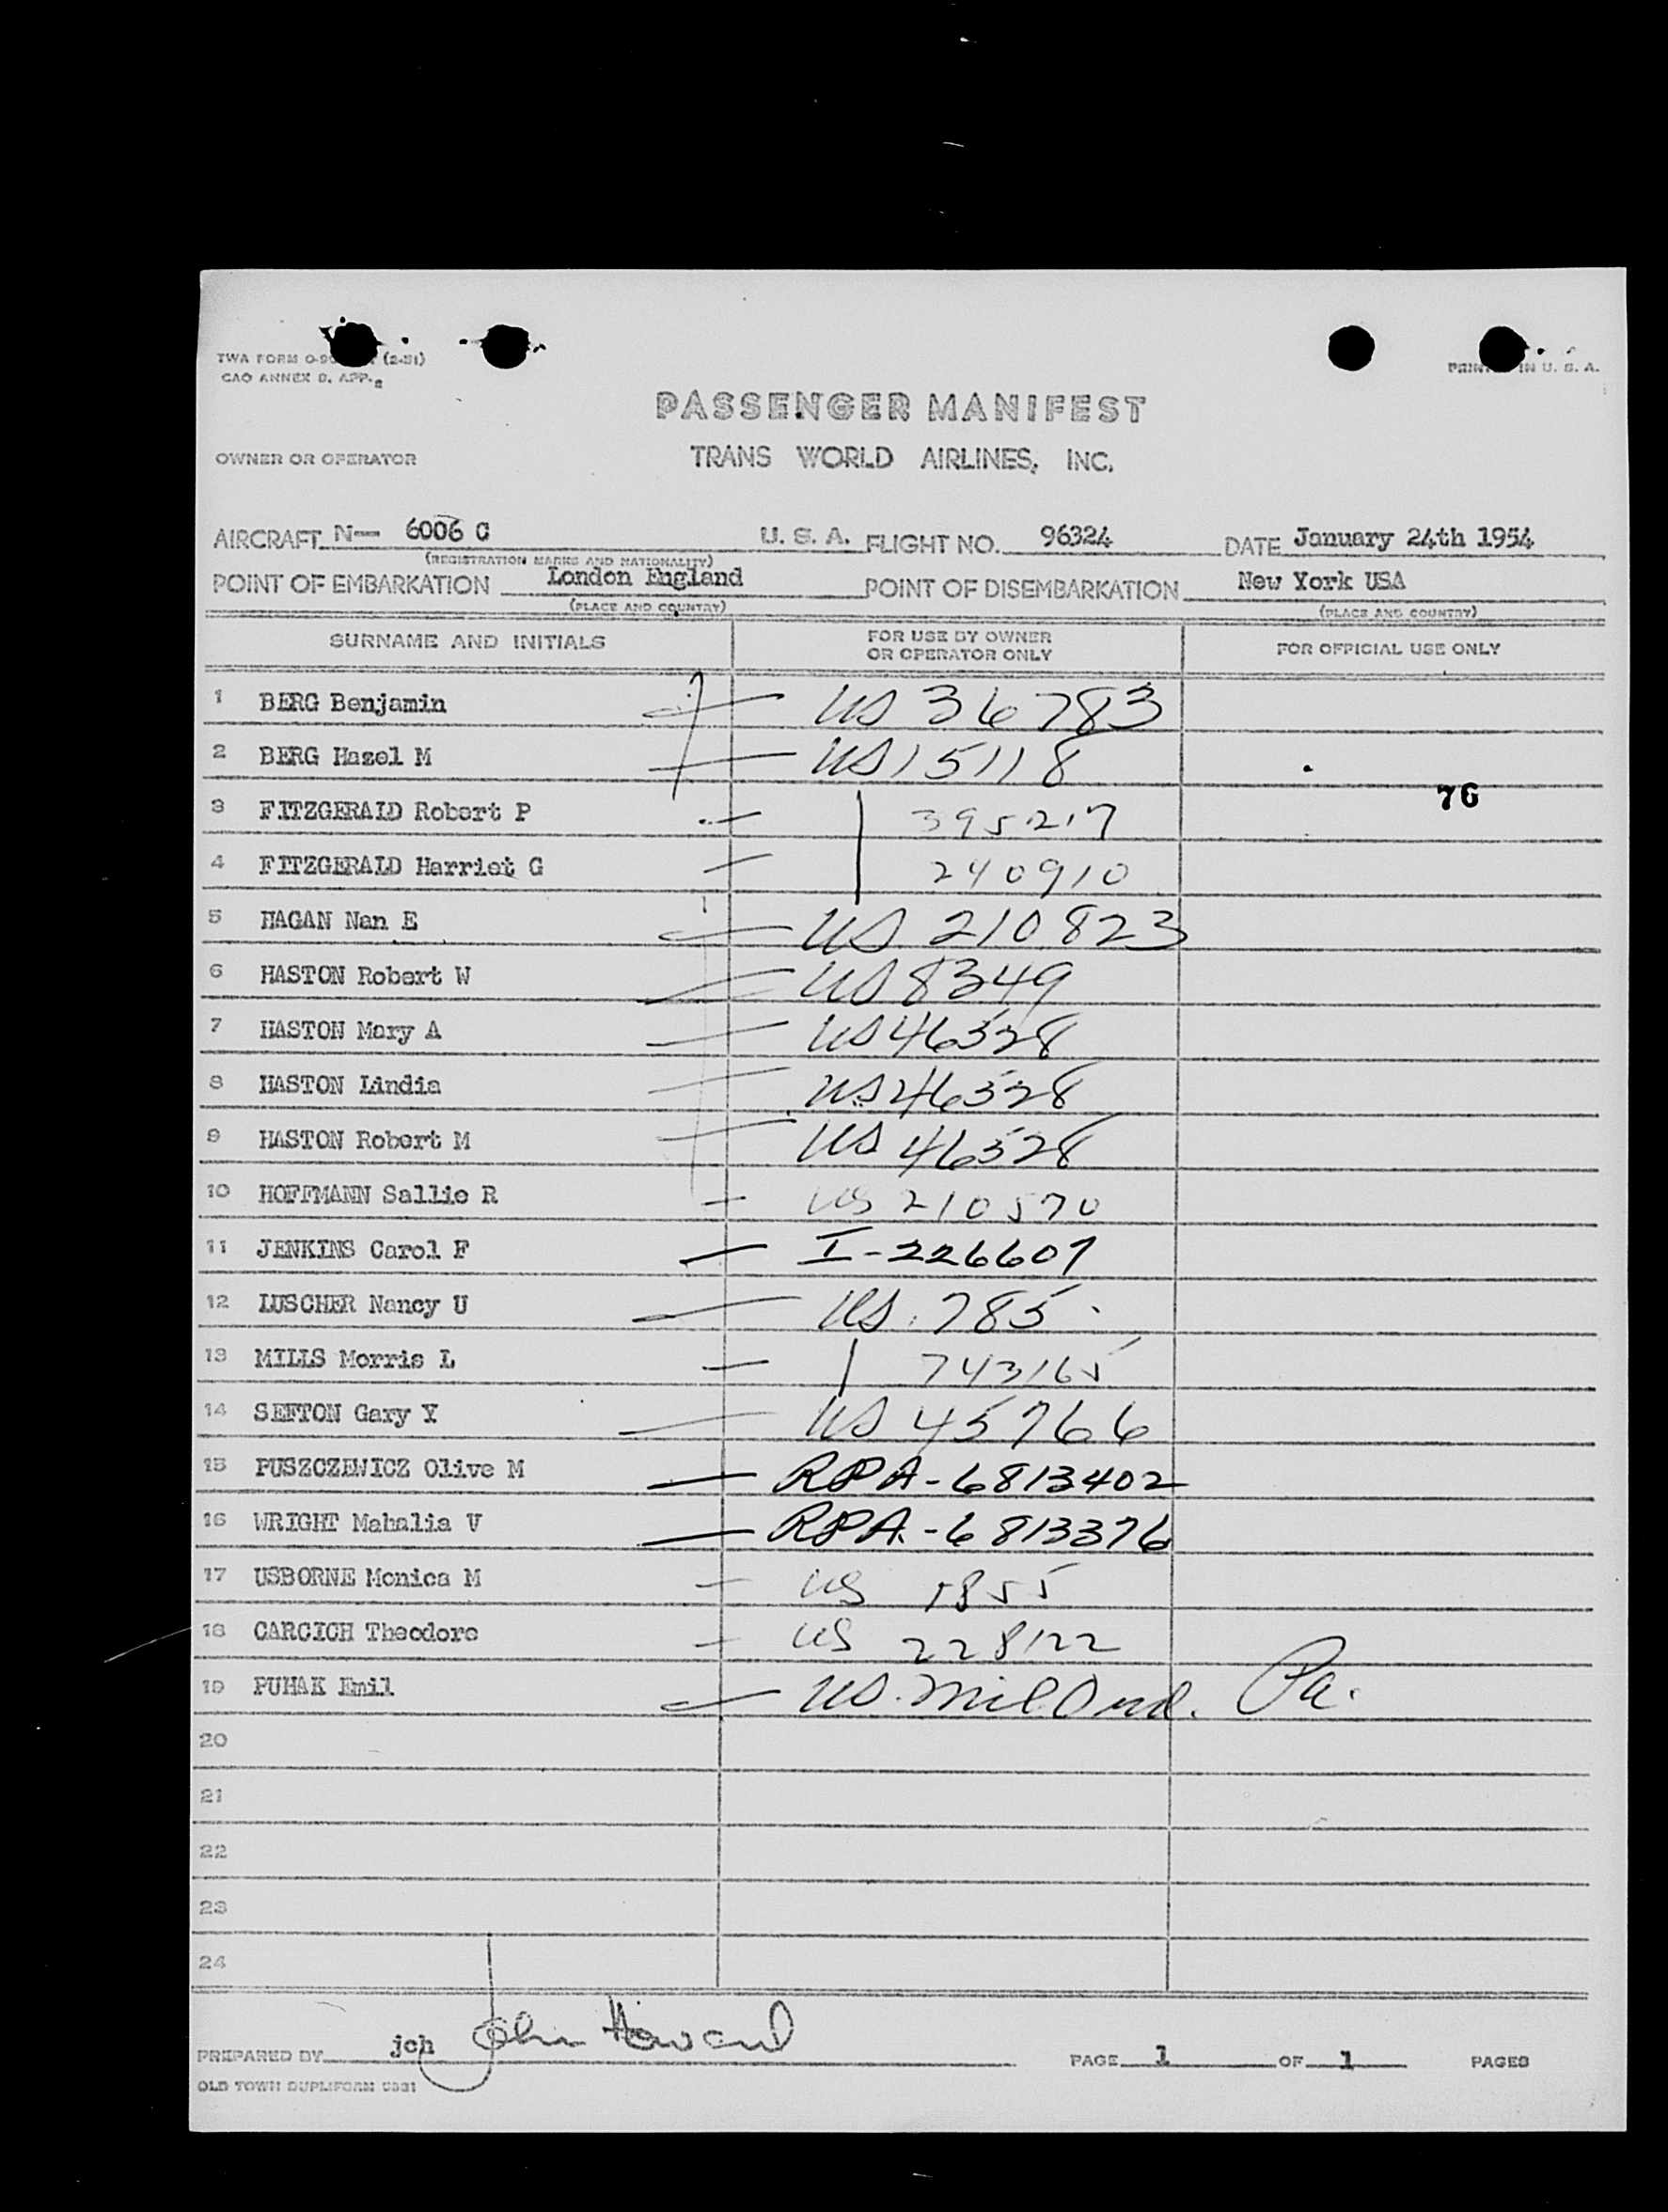 TWA FORM O-90 (2-51)
CAO ANNEX 9, APP. 2
PRINTED IN U. S. A.
PASSENGER MANIFEST
OWNER OR OPERATOR TRANS WORLD AIRLINES, INC.
AIRCRAFT N— 6006 C U. S. A. FLIGHT NO. 96324 DATE January 24th 1954
(REGISTRATION MARKS AND NATIONALITY)
POINT OF EMBARKATION London England POINT OF DISEMBARKATION New York USA
(PLACE AND COUNTRY) (PLACE AND COUNTRY)
SURNAME AND INITIALS FOR USE BY OWNER OR OPERATOR ONLY FOR OFFICIAL USE ONLY
1 BERG Benjamin — US 36783
2 BERG Hazel M — US 15118
76
3 FITZGERALD Robert P — | 395217
4 FITZGERALD Harriet G — | 240910
5 HAGAN Nan E — US 210823
6 HASTON Robert W — US 8349
7 HASTON Mary A — US 46328
8 HASTON Lindia — US 46328
9 HASTON Robert M — US 46328
10 HOFFMANN Sallie R — US 210570
11 JENKINS Carol F — I-226607
12 LUSCHER Nancy U — US 785
13 MILLS Morris L — | 743165
14 SEFTON Gary Y — US 45766
15 PUSZCZEWICZ Olive M — RPA-6813402
16 WRIGHT Mahalia V — RPA-6813376
17 USBORNE Monica M — US 1855
18 CARCICH Theodore — US 228122
19 PUHAK Emil — US. Mil Ord. Pa.
20
21
22
23
24
PREPARED BY jch John Howard PAGE 1 OF 1 PAGES
OLD TOWN DUPLIFORM